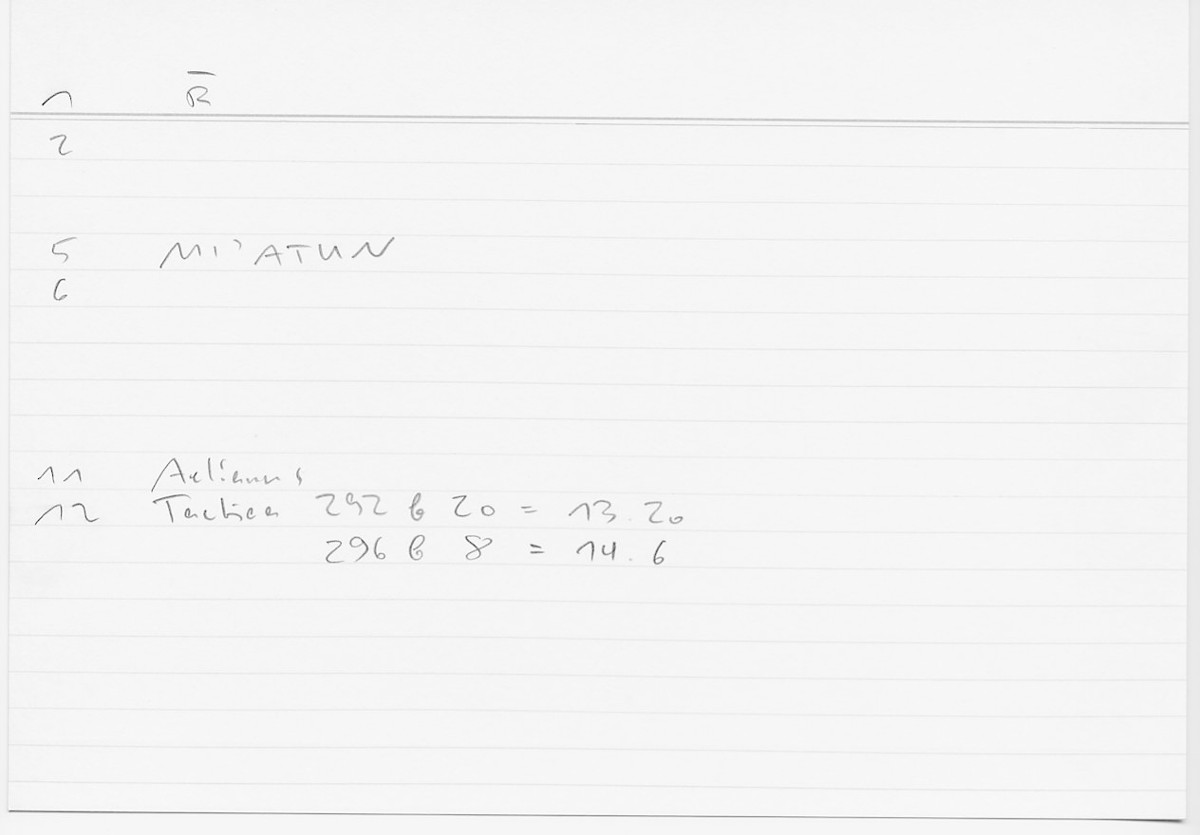 1 R̅
2
5 MI'ATUN
6
11 Aelianus
12 Tactica 292 b 20 = 13.20
296 b 8 = 14.6